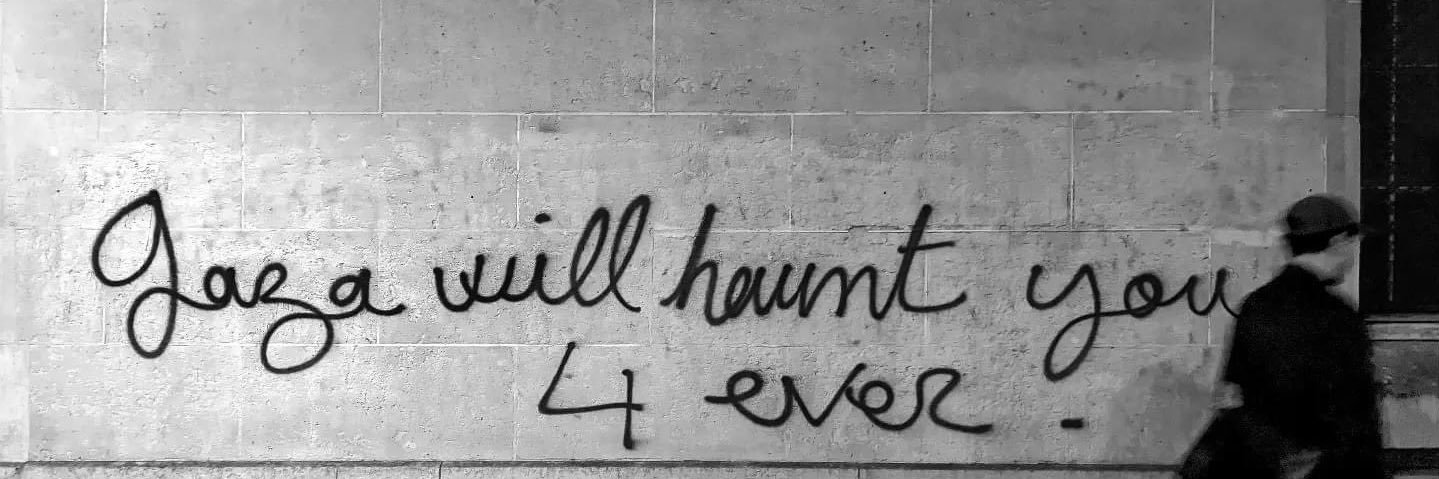 Gaza will haunt you
4 ever.